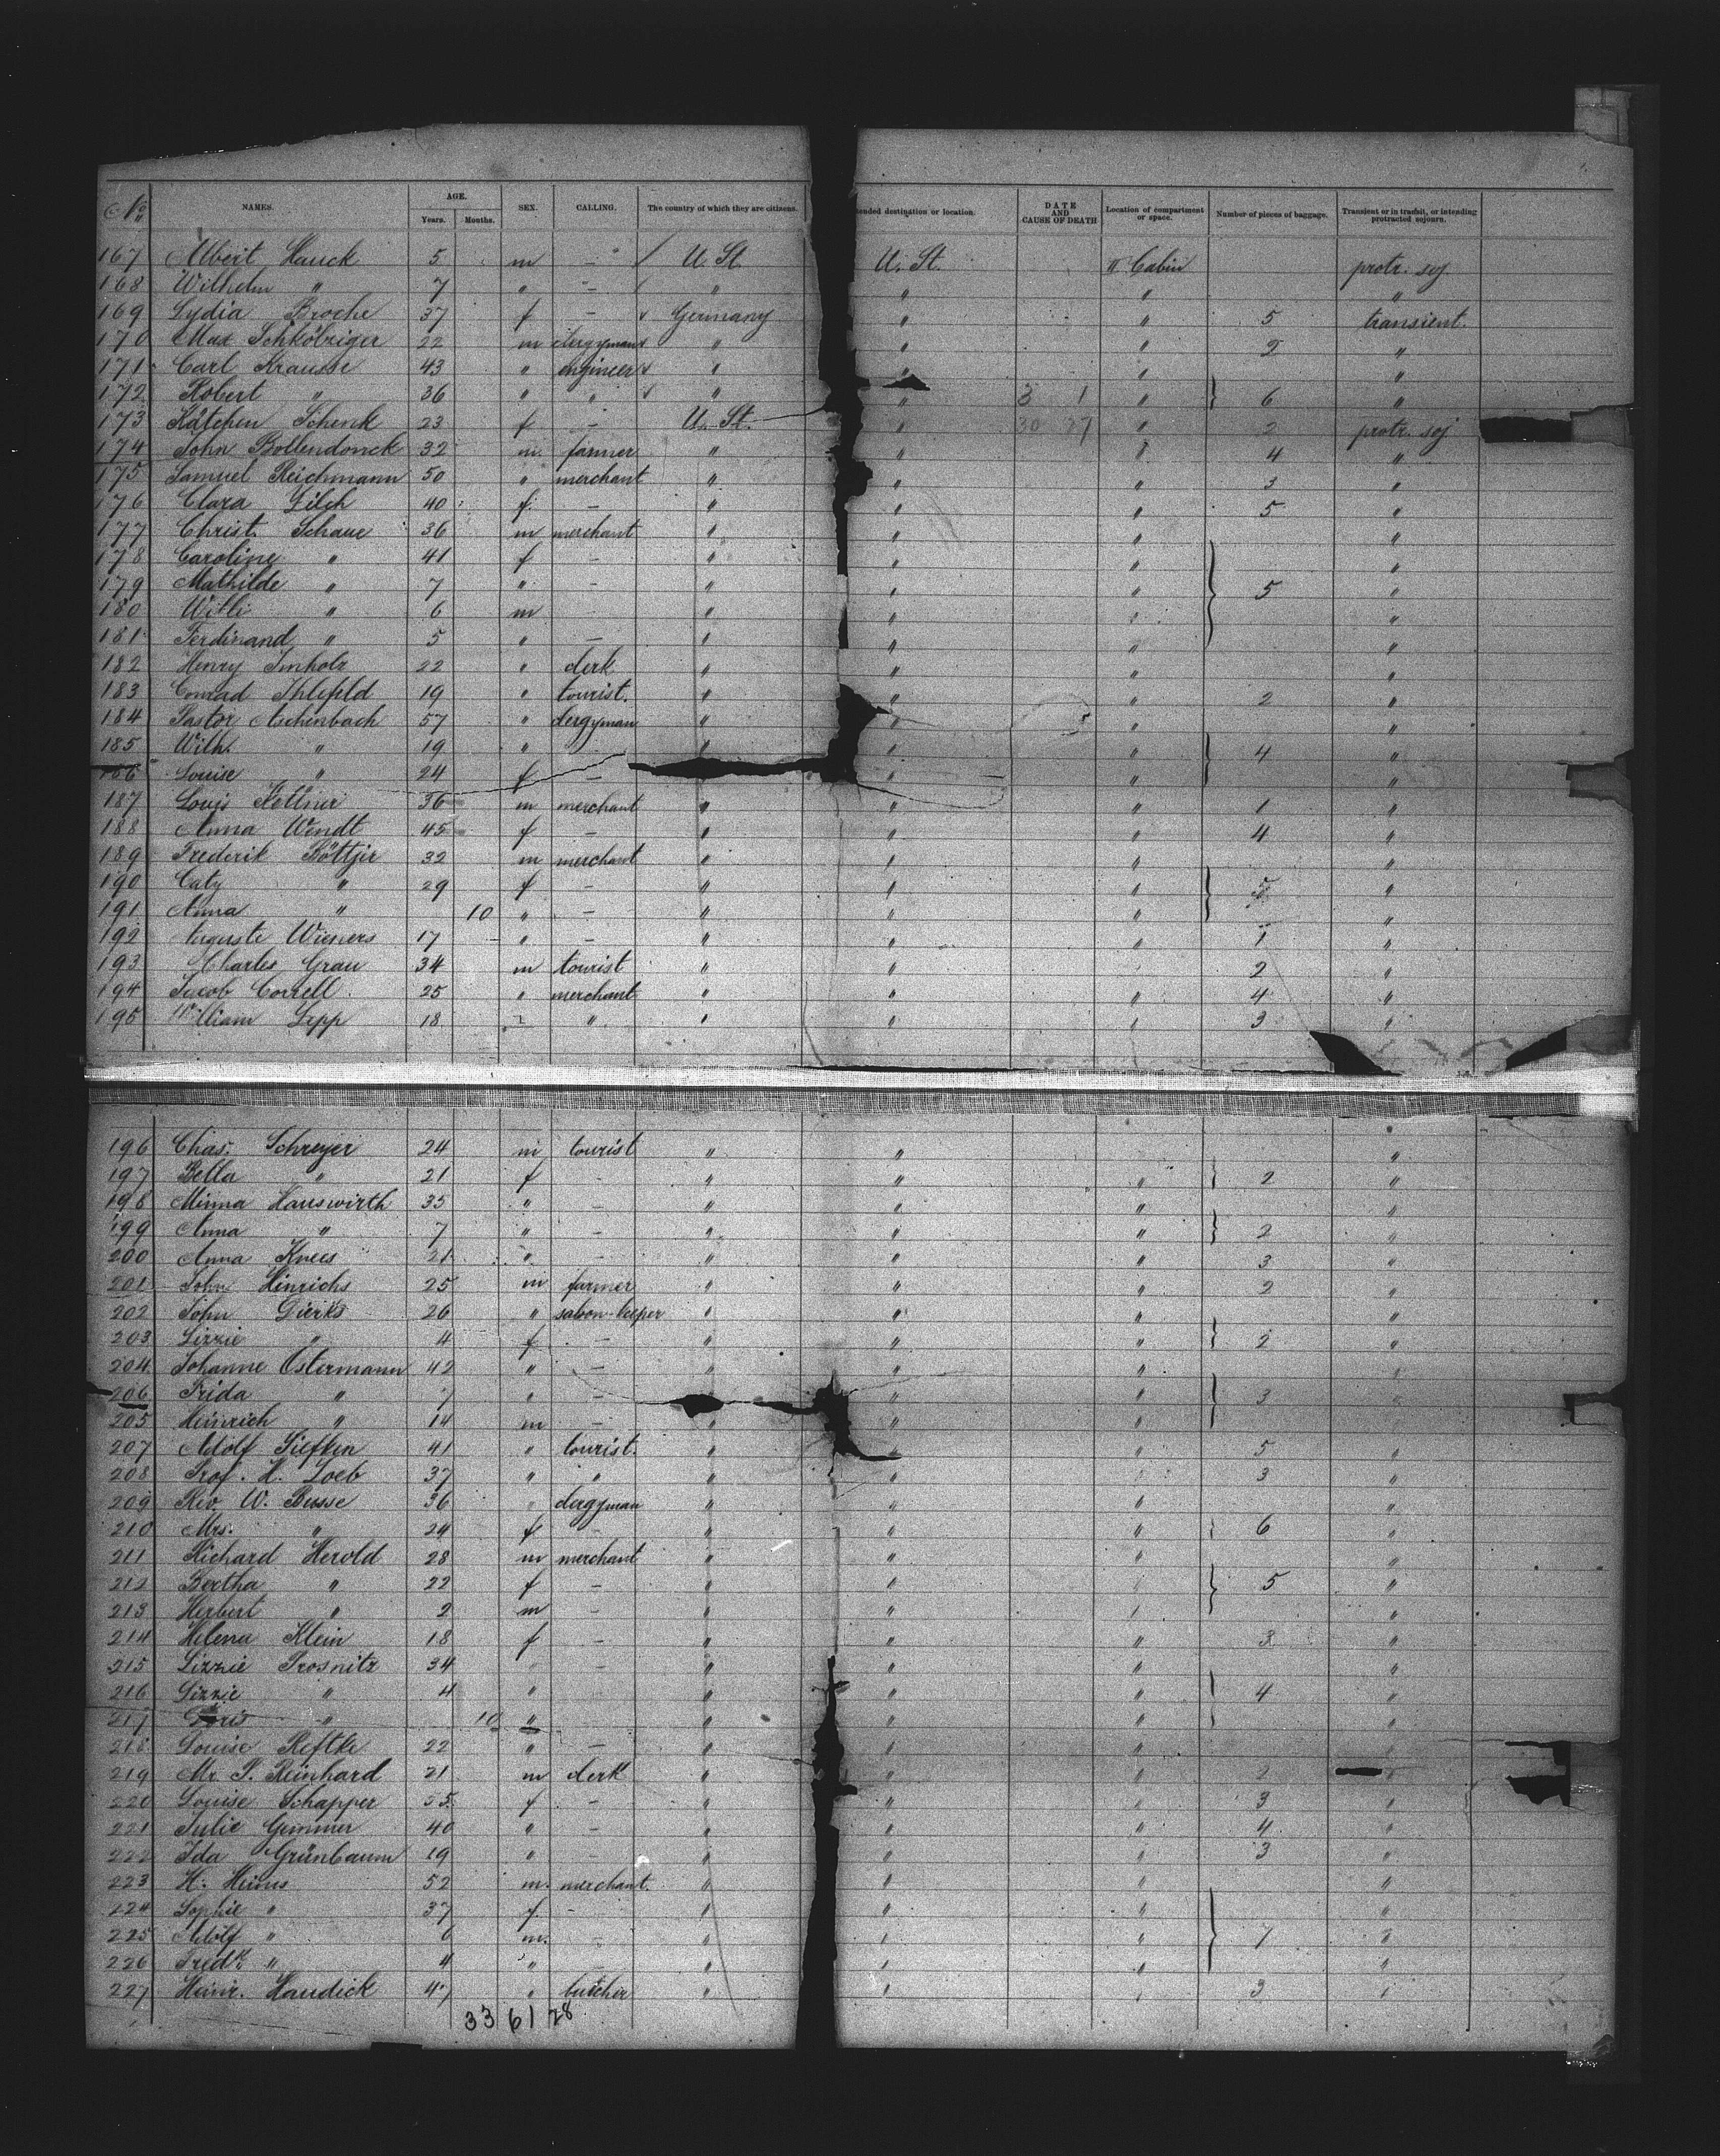 No NAMES. AGE. Years. Months. SEX. CALLING. The country of which they are citizens. ended destination or location. DATE AND CAUSE OF DEATH Location of compartment or space. Number of pieces of baggage. Transient or in transit, or intending protracted sojourn.
167 Albert Hauck 5 m – / U. St. U. St. II Cabin protr. soj.
168 Wilhelm " 7 " – / " " " "
169 Lydia Broche 37 f – Germany " " 5 transient.
170 Max Schköbziger 22 m clergyman " " " 2 "
171 Carl Krausse 43 " engineer " " " "
172 Robert " 36 " " " " 3 1 " } 6 "
173 Kätchen Schenk 23 f – U. St. " 30 27 " 2 protr. soj
174 John Bollendonck 32 m. farmer " " " 4 "
175 Samuel Reichmann 50 " merchant " " " 3 "
176 Clara Zilch 40 f. – " " " 5 "
177 Christ. Schaue 36 m merchant " " " "
178 Caroline " 41 f – " " " "
179 Mathilde " 7 " – " " " } 5 "
180 Willi " 6 m – " " " "
181 Ferdinand " 5 " – " " " "
182 Henry Imholz 22 " clerk " " " "
183 Conrad 19 " tourist. " " " 2 "
184 Pastor Aschenbach 57 " clergyman " " " "
185 Wilh. " 19 " – " " " } 4 "
186 Louise " 24 f – " " "
187 Louis Kettner 36 m merchant " " " 1 "
188 Anna Wendt 45 f – " " " 4 "
189 Frederik Böttjer 32 m merchant " " " "
190 Caty " 29 f – " " " } 5 "
191 Anna " 10 " – " " " "
192 Auguste Wieners 17 – " – " " " 1 "
193 Charles Grau 34 m tourist " " 2 "
194 Jacob Correll 25 " merchant " " " 4 "
195 William Lepp 18 " " " " 3 "
196 Chas. Schreyer 24 m tourist " " "
197 Bella " 21 f – " " " } 2 "
198 Minna Hauswirth 35 " – " " " "
199 Anna " 7 " – " " " } 2 "
200 Anna Knees 21 " – " " " 3 "
201 John Hinrichs 25 m farmer " " " 2 "
202 John Dierks 26 " saloon-keeper " " " "
203 Lizzie " 4 f – " " " } 2 "
204 Johanne Ostermann 42 " – " " " "
206 Frida " 7 " – " " " } 3 "
205 Heinrich " 14 m – " " " "
207 Adolf Siefken 41 " tourist. " " " 5 "
208 Prof. H. Loeb 37 " " " " " 3 "
209 Rev. W. Busse 36 " clergyman " " " "
210 Mrs. " 24 f – " " " } 6 "
211 Richard Herold 28 m merchant " " " "
212 Bertha " 22 f – " " " } 5 "
213 Herbert " 2 m – " " " "
214 Helena Klein 18 f – " " " 3 "
215 Lizzie Prosnitz 34 " – " " " "
216 Lizzie " 4 " " " " } 4 "
217 Doris " 10 " " " " "
218 Louise Reftke 22 " – " " " "
219 Mr. P. Reinhard 21 m clerk " " " 2 "
220 Louise Schapper f – " " " 3 "
221 Julie Gimmer 40 " – " " " 4 "
222 Ida Grünbaum 19 " – " " " 3 "
223 H. Heims 52 m. merchant. " " " "
224 Sophie " 37 f. – " " " "
225 Adolf " 6 m. – " " " } 7 "
226 Fredk. " 4 " – " " " "
227 Heinr. Haudick 47 " butcher " " " 3 "
33 61 28